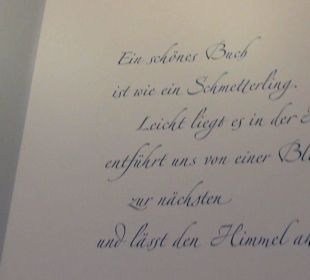 Ein schönes Buch
ist wie ein Schmetterling.
Leicht liegt es in der
entführt uns von einer
zur nächsten
und lässt den Himmel